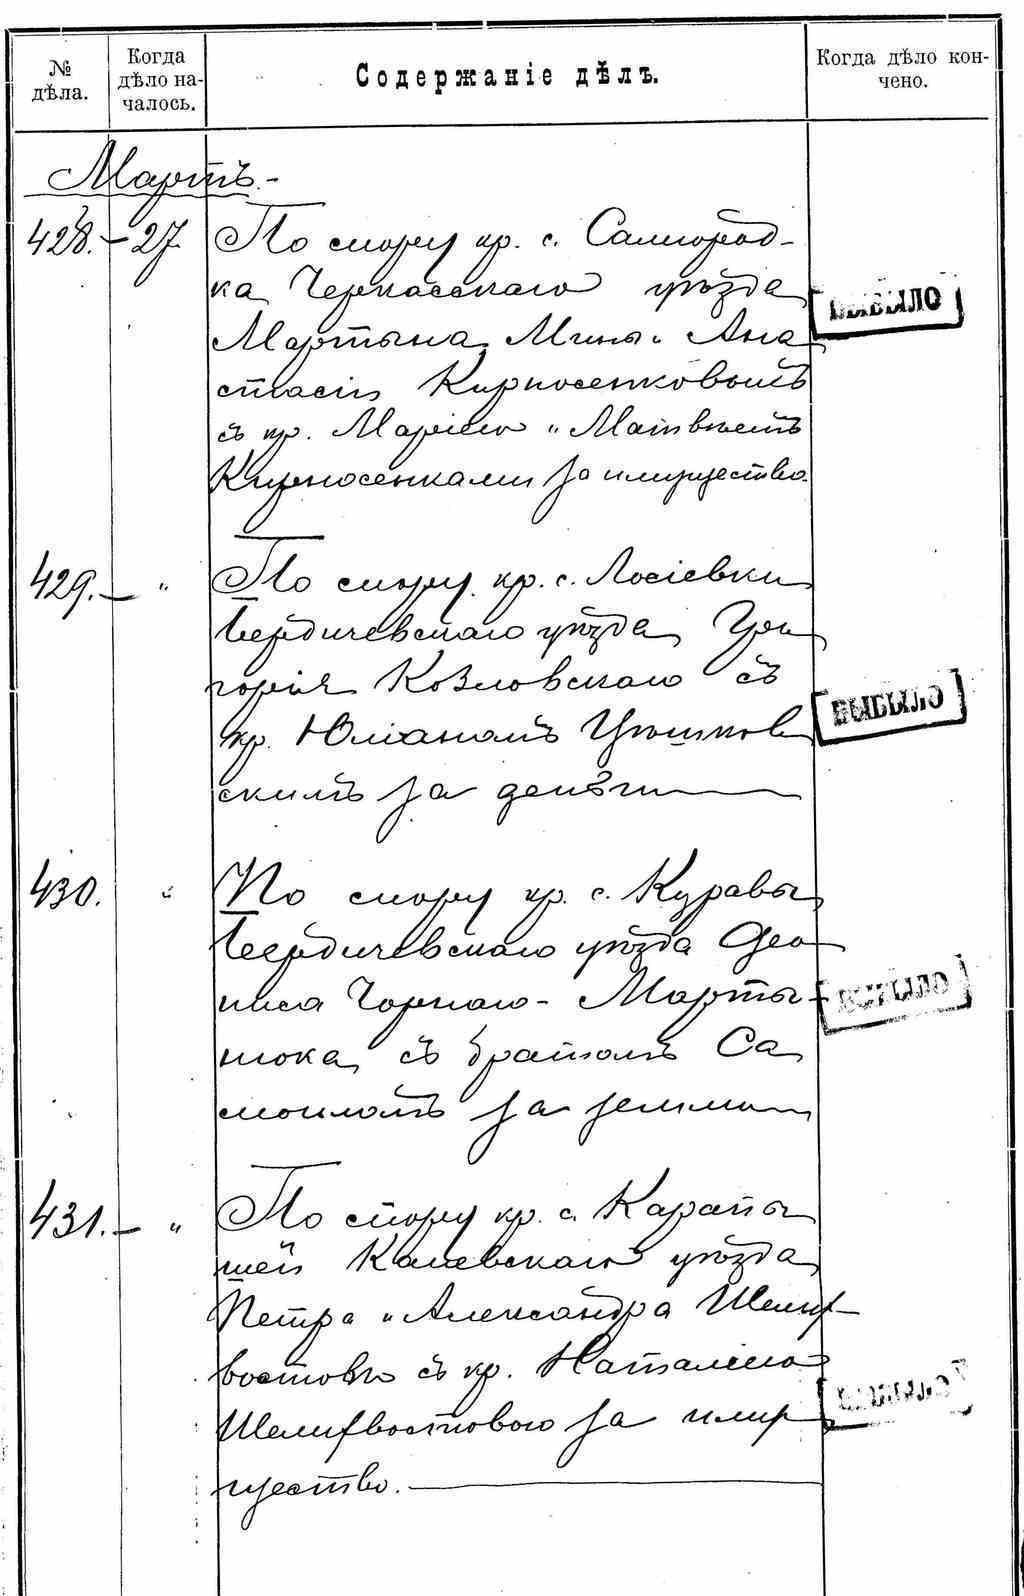 № дѣла.
Когда дѣло на-
чалось.
Содержаніе дѣлъ.
Когда дѣло кон-
чено.
Мартъ.-
428.- 27.
По спору кр. с. Самгород-
ка Черкасскаго уѣзда
Мартына, Мины и Ана
стасіи Кирносенковыхъ
съ кр. Маріею и Матвѣемъ
Кирносенками за имущество.
ВЫБЫЛО
429.- "
По спору кр. с. Лосіевки
Бердичевскаго уѣзда Гри
горія Козловскаго съ
кр. Юліаномъ
скимъ за деньги
ВЫБЫЛО
430. "
По спору кр. с. Куравы
Бердичевскаго уѣзда Део
ниса Чорнаго- Марты-
нюка съ братомъ Са
моиломъ за землю
ВЫБЫЛО
431.- "
По спору кр. с. Карапы
шей Каневскаго уѣзда
Петра и Александра
съ кр. Наталіею
за иму
щество.